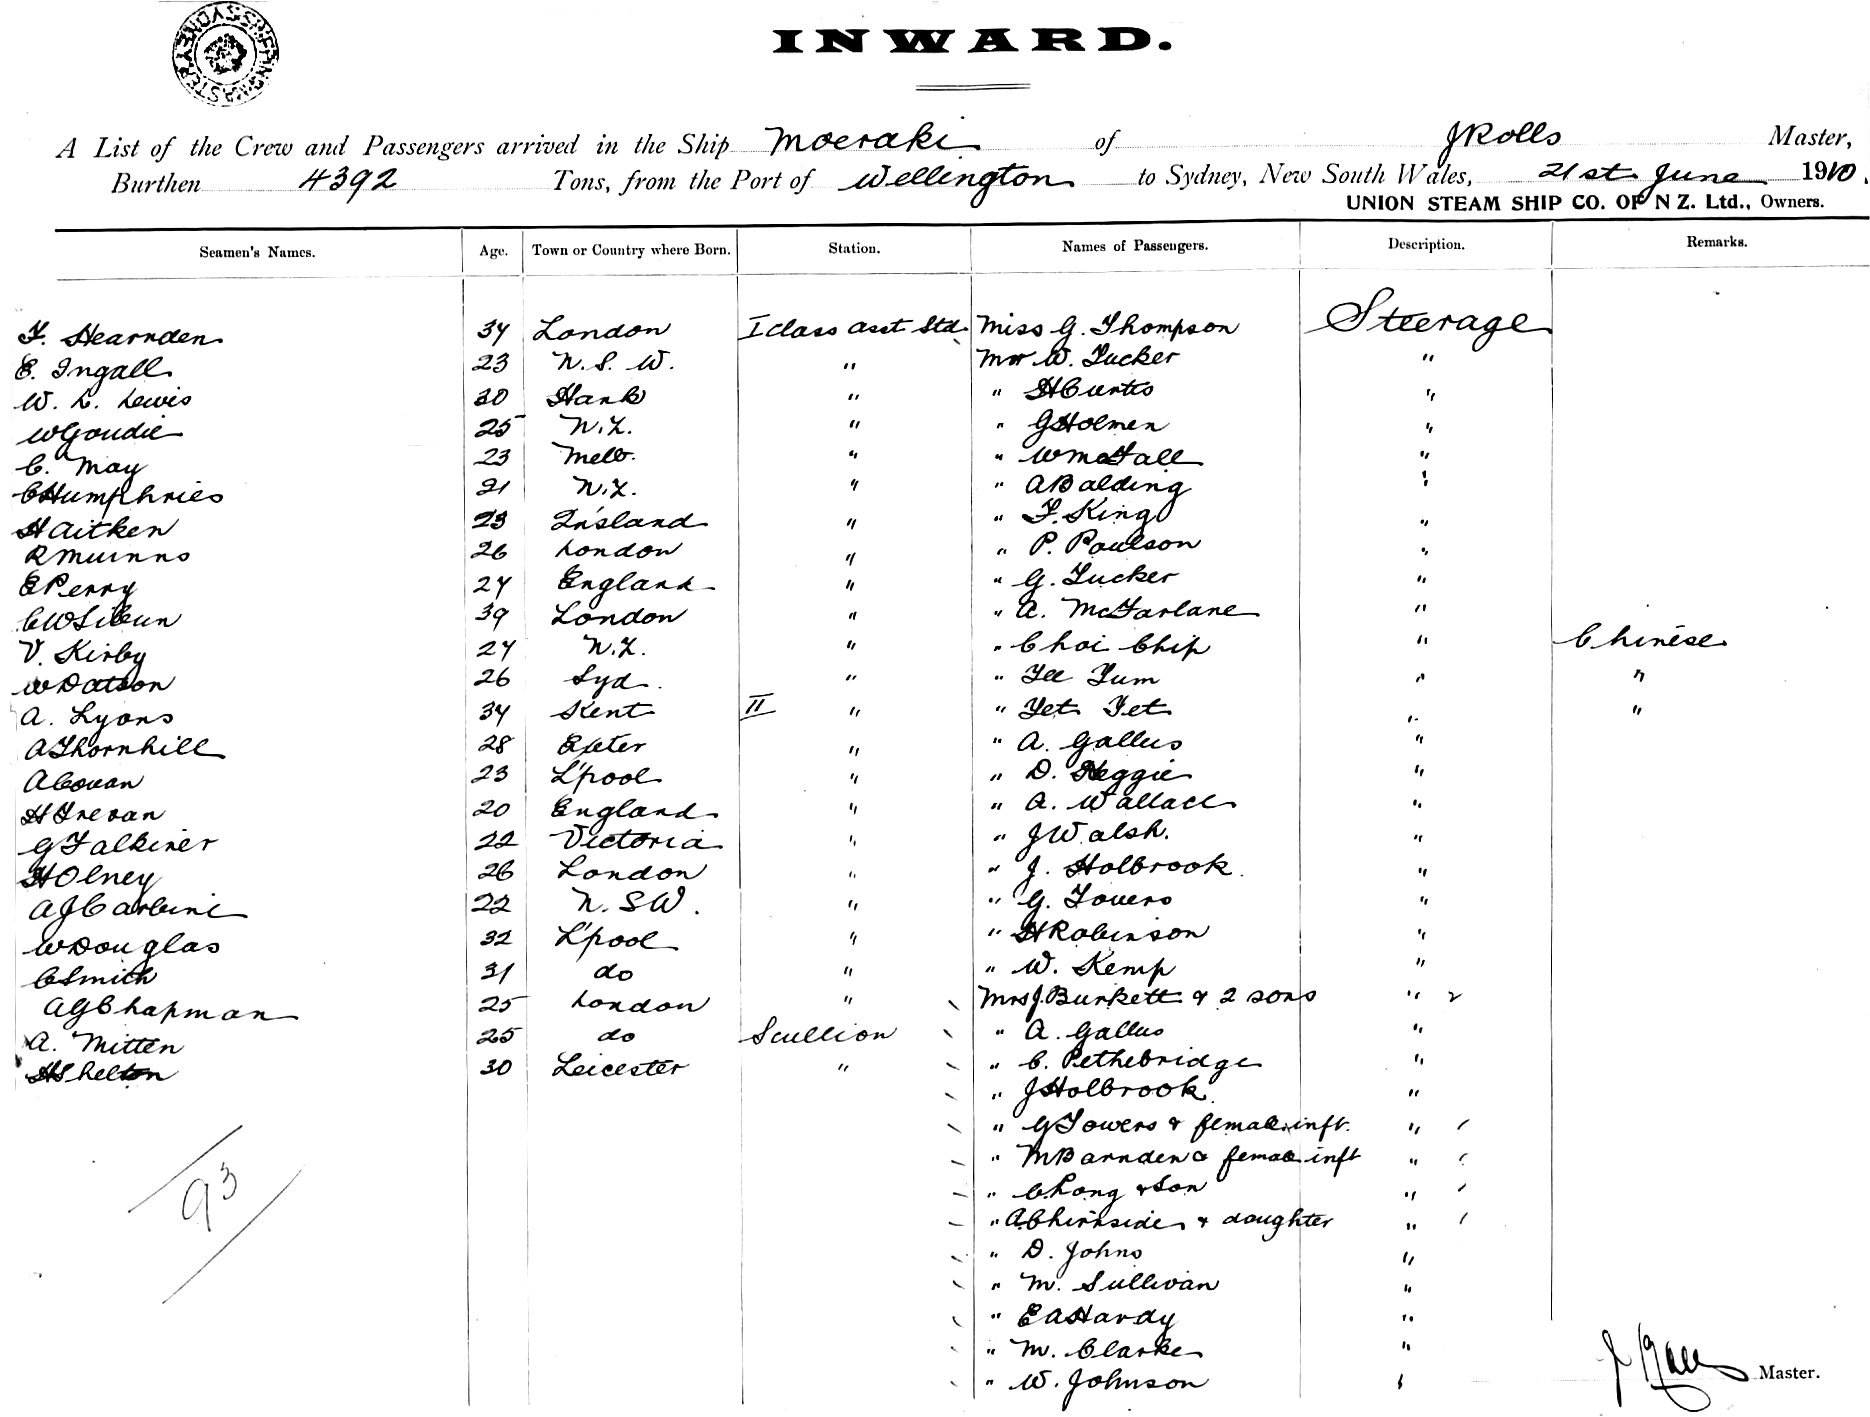 SHIPPING MASTER SYDNEY
INWARD.
A List of the Crew and Passengers arrived in the Ship Moeraki of J Rolls Master,
Burthen 4392 Tons, from the Port of Wellington to Sydney, New South Wales, 21st June 1910.
UNION STEAM SHIP CO. OF N Z. Ltd., Owners.
Seamen's Names. Age. Town or Country where Born. Station. Names of Passengers. Description. Remarks.
F. Hearnden 34 London I class asst Std Miss G. Thompson Steerage
E. Ingall 23 N. S. W. " Mr W. Tucker "
W. L. Lewis 30 Hank " " H Curtis "
W Goudie 25 N.Z. " " G Holmen "
C. May 23 Melb. " " W McFall "
C Humphries 21 N.Z. " " A Balding "
H Aitken 23 Q'sland " " F. King "
R Muinns 26 London " " P. Poulson "
E Perry 24 England " " G. Tucker "
C W Sibun 39 London " " A. McFarlane "
V. Kirby 24 N.Z. " " Choi Chip " Chinese
W Datson 26 Syd. " " Yee Yum " "
A. Lyons 34 Kent II " " Yet Yet " "
A Thornhill 28 Exeter " " A. Gallus "
A Cowan 23 L'pool " " D. Heggie "
H Trevan 20 England " " A. Wallace "
G Falkiner 22 Victoria " " J Walsh. "
H Olney 26 London " " J. Holbrook "
A J Carbine 22 N. S W. " " G. Towers "
W Douglas 32 L'pool " " H Robinson "
C Smith 31 do " " W. Kemp "
A G Chapman 25 London " Mrs J. Burkett & 2 sons " 2
A. Mitten 25 do Scullion " A. Gallus "
H Shelton 30 Leicester " " C. Pethebridge "
" J Holbrook "
" G Towers & female inft. " 1
" M Barnden & female inft " 1
" C Long & Son " 1
" A Chirnside & daughter " 1
" D. Johns "
" M. Sullivan "
" E A Hardy "
" M. Clarke "
" W. Johnson "
93
J Rolls Master.